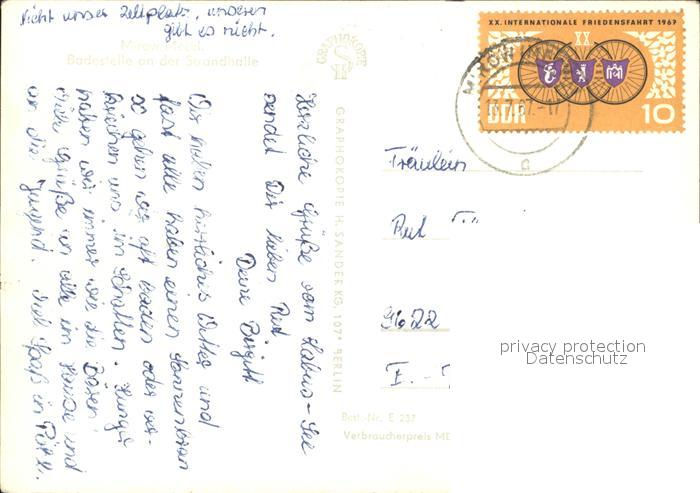 nicht unser Zeltplatz, unseren
gibt es nicht.
Mirow Meckl.
Badestelle an der Strandhalle
Herzliche Grüße vom Kabus-See
sendet Dir lieben Rut
Deine Birgitt
Wir haben herrliches Wetter und
fast alle haben einen Sonnenbrand
so gehen wir oft baden oder ver-
kriechen uns im Schatten. Hunger
haben wir immer wie die Bären!
Viele Grüße an alle im Hause und
an die Jugend. Viel Spaß in
GRAPHOKOPIE
GRAPHOKOPIE H. SANDER KG, 107 BERLIN
Best.-Nr. E 237
Verbraucherpreis
XX. INTERNATIONALE FRIEDENSFAHRT 1967
XX
DDR
10
MIROW
Fräulein
Rut
privacy protection
Datenschutz